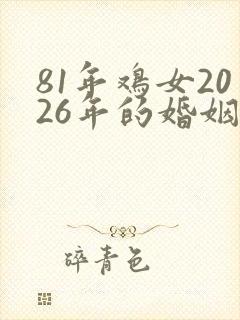 81年鸡女20
26年的婚姻
碎青色